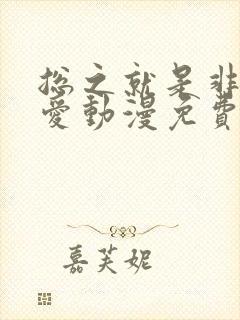 总之就是非
愛動漫免費
嘉芙妮